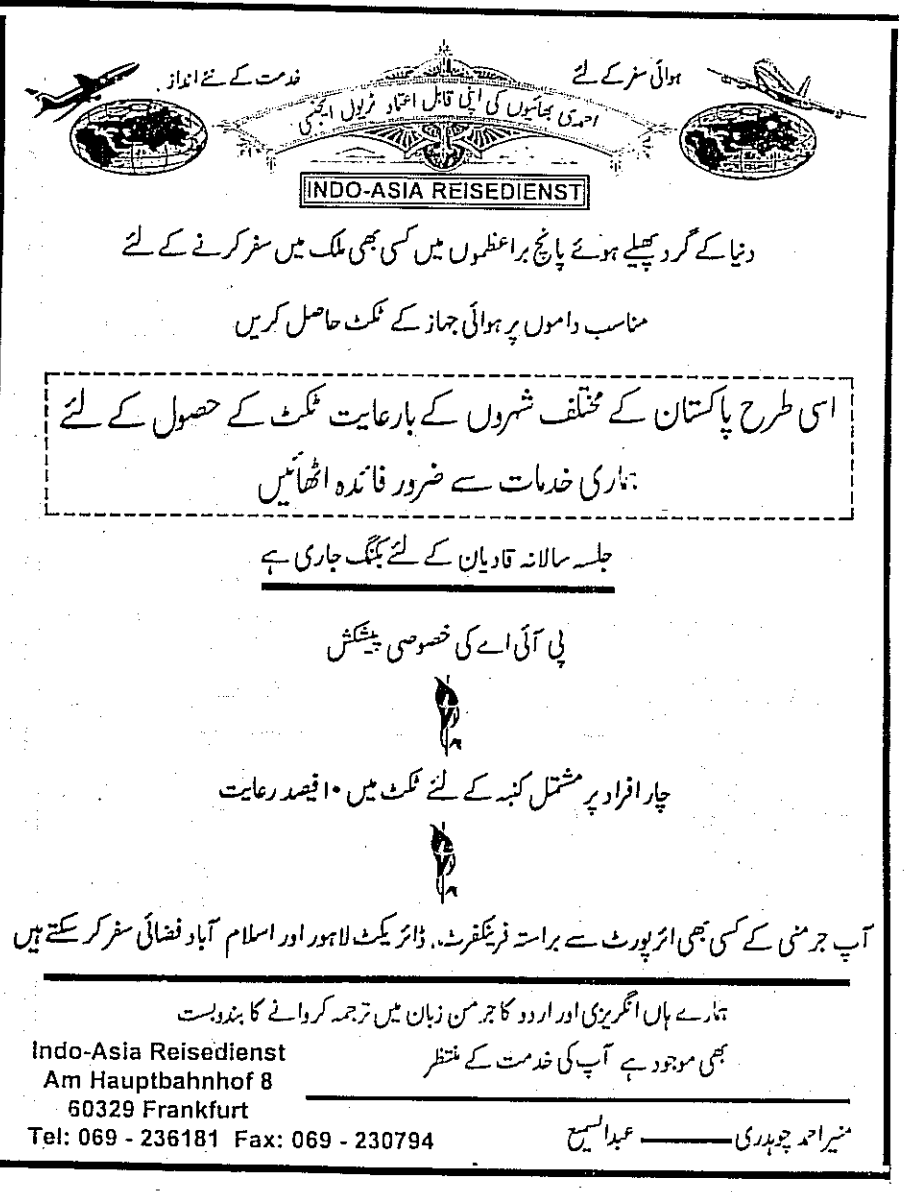 ہوائی سفر کے لئے
خدمت کے نئے انداز
احمدی بھائیوں کی اپنی قابل اعتماد ٹریول ایجنسی
INDO-ASIA REISEDIENST
دنیا کے گرد پھیلے ہوئے پانچ براعظموں میں کسی بھی ملک میں سفر کرنے کے لئے
مناسب داموں پر ہوائی جہاز کے ٹکٹ حاصل کریں
اسی طرح پاکستان کے مختلف شہروں کے بارعایت ٹکٹ کے حصول کے لئے
ہماری خدمات سے ضرور فائدہ اٹھائیں
جلسہ سالانہ قادیان کے لئے بکنگ جاری ہے
پی آئی اے کی خصوصی پیشکش
چار افراد پر مشتمل کنبہ کے لئے ٹکٹ میں ۱۰ فیصد رعایت
آپ جرمنی کے کسی بھی ائرپورٹ سے براستہ فرینکفرٹ، ڈائریکٹ لاہور اور اسلام آباد فضائی سفر کر سکتے ہیں
ہمارے ہاں انگریزی اور اردو کا جرمن زبان میں ترجمہ کروانے کا بندوبست
بھی موجود ہے آپ کی خدمت کے منتظر
منیر احمد چوہدری ــــــ عبدالسمیع
Indo-Asia Reisedienst
Am Hauptbahnhof 8
60329 Frankfurt
Tel: 069 - 236181 Fax: 069 - 230794